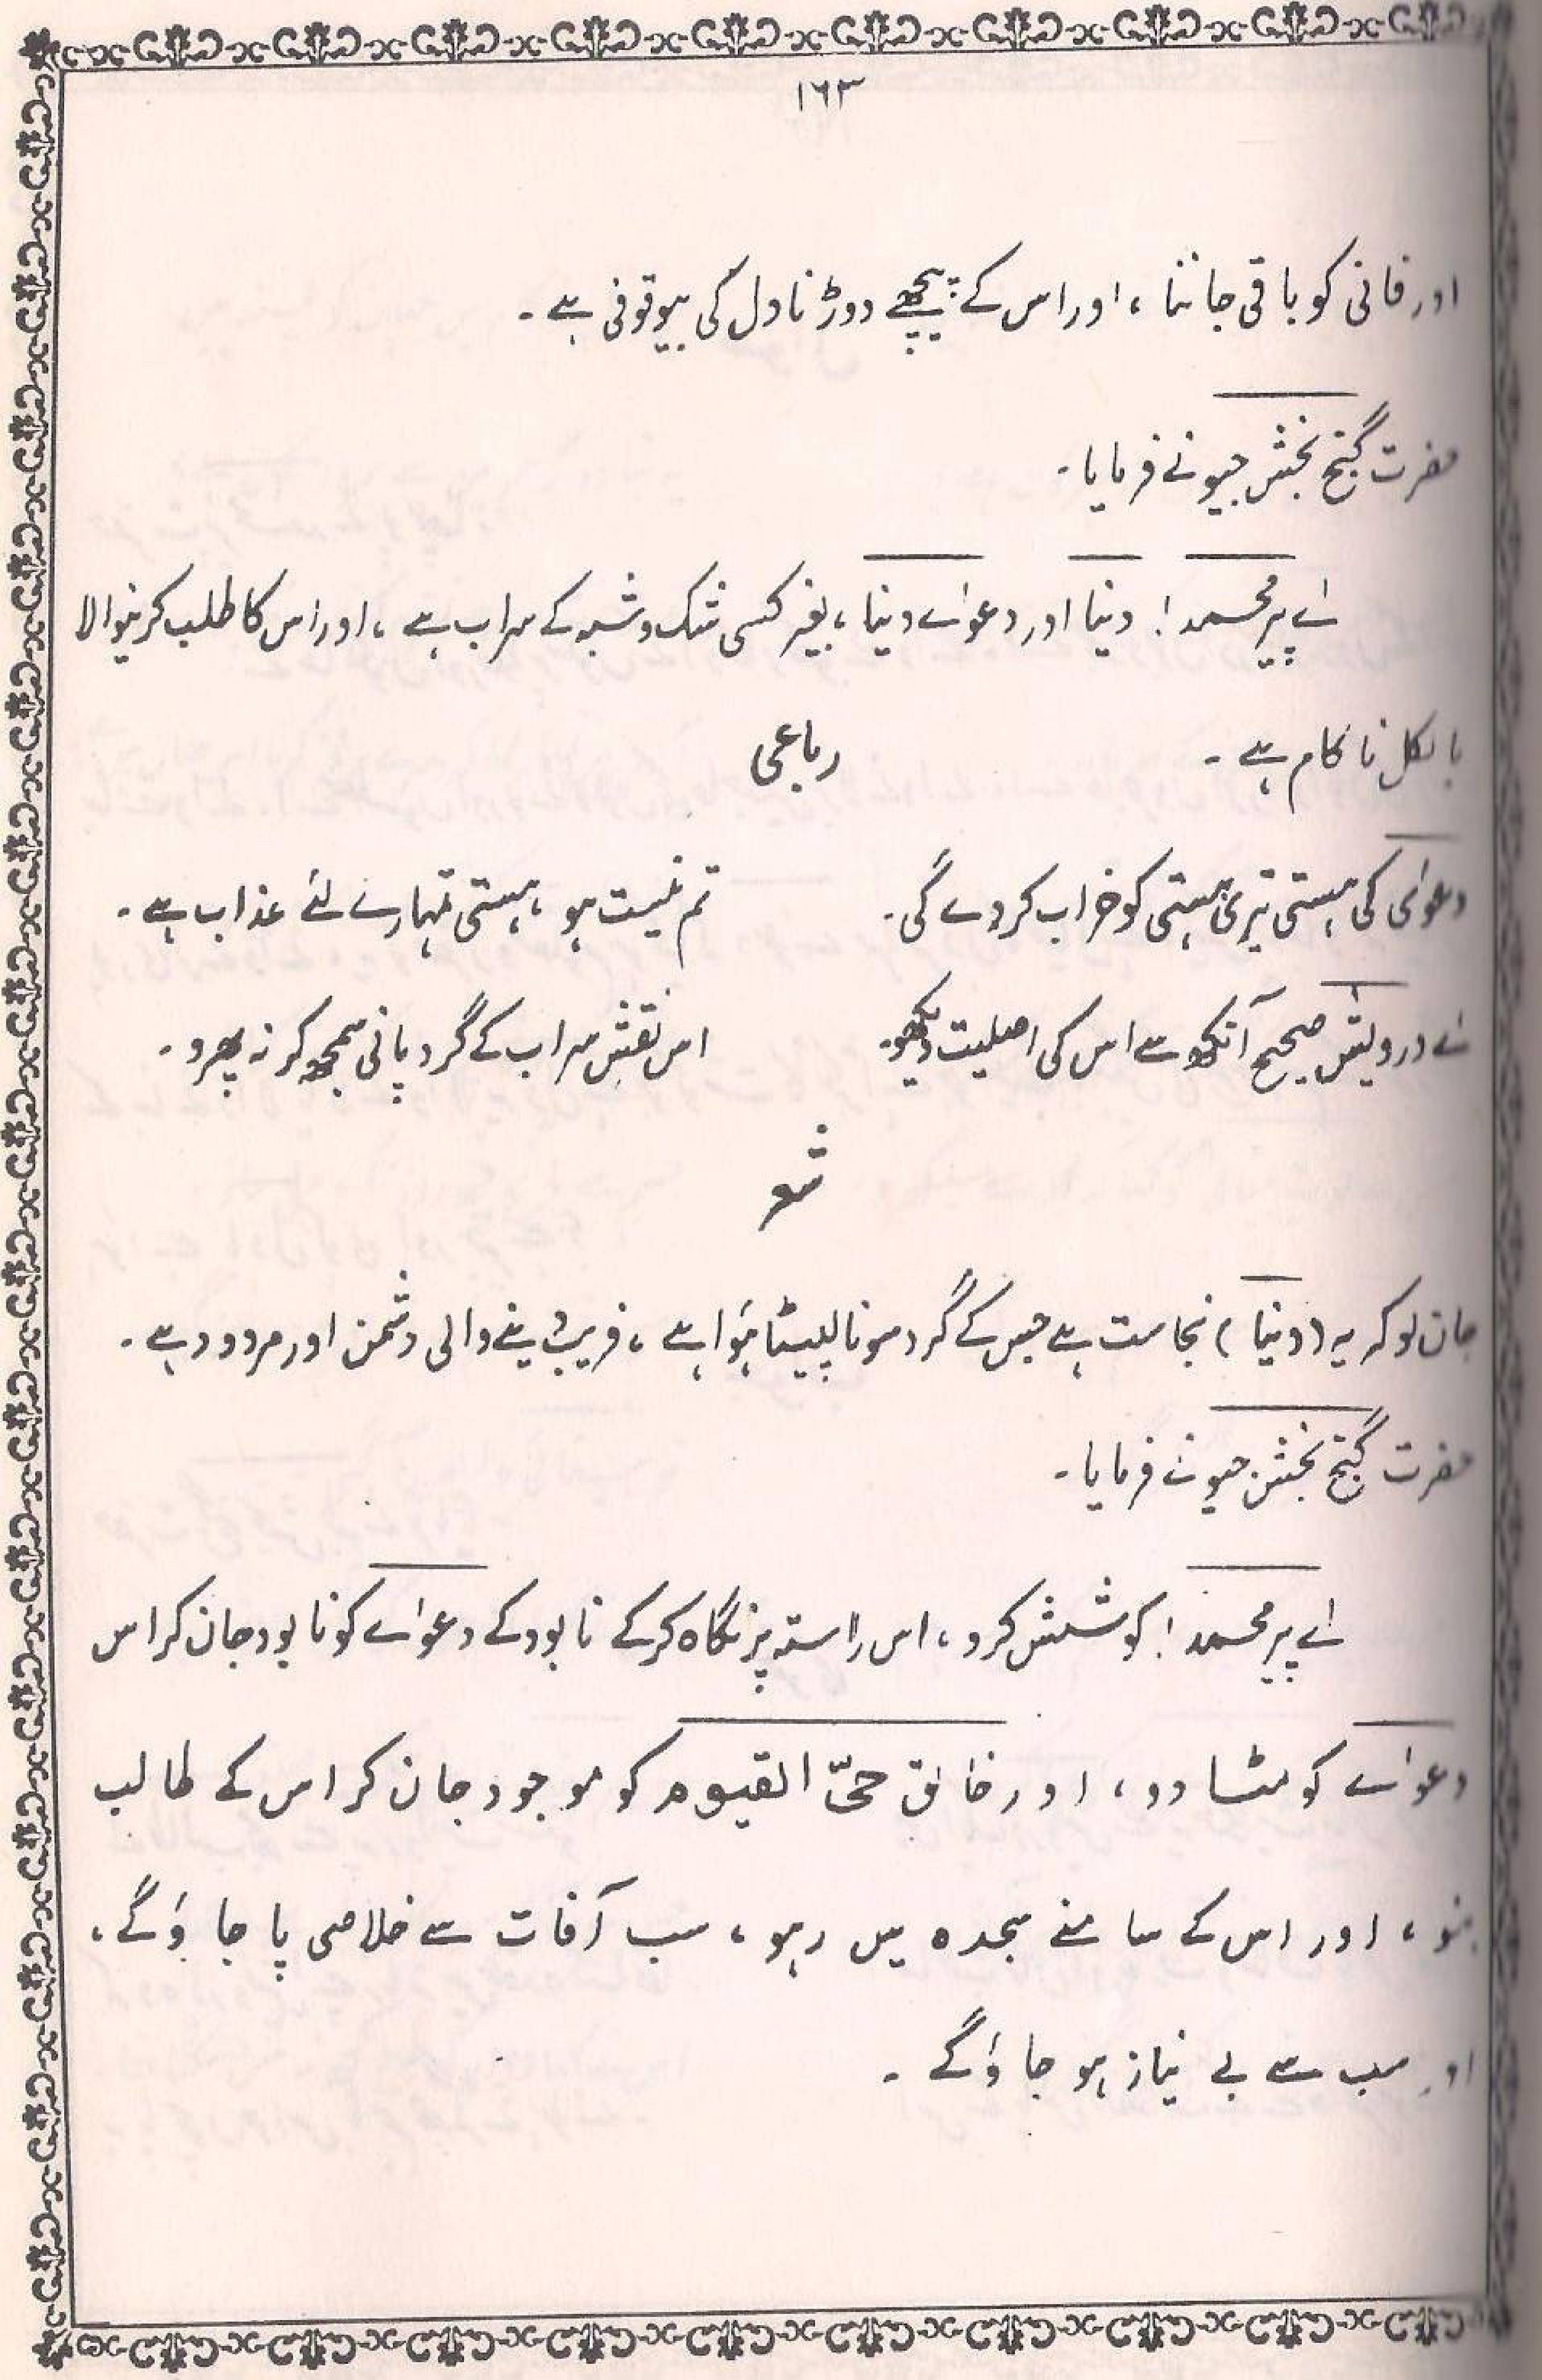 ۱۶۳
اور فانی کو باقی جاننا ، اور اس کے پیچھے دوڑنا دل کی بیوقوفی ہے ۔
حضرت گنج بخش جیو نے فرمایا ۔
اے پیر محمد ! دنیا اور دعواے دنیا ، بغیر کسی شک و شبہ کے سراب ہے ، اور اس کا طلب کرنیوالا
بالکل ناکام ہے ۔ رباعی
دعوای کی ہستی تیری ہستی کو خراب کر دے گی ۔ تم نیست ہو ، ہستی تمہارے لئے عذاب ہے ۔
اے درویش صحیح آنکھ سے اس کی اصلیت دیکھو ۔ اس نقش سراب کے گرد پانی سمجھ کر نہ پھرو ۔
شعر
جان لو کہ یہ ( دنیا ) نجاست ہے جس کے گرد سونا لپیٹا ہؤا ہے ، فریب دینے والی دشمن اور مردود ہے ۔
حضرت گنج بخش جیو نے فرمایا ۔
اے پیر محمد ! کوشش کرو ، اس راستہ پر نگاہ کر کے نابود کے دعواے کو نابود جان کر اس
دعواے کو مٹا دو ، اور خالق حیّ القیوم کو موجود جان کر اس کے طالب
بنو ، اور اس کے سامنے سجدہ میں رہو ، سب آفات سے خلاصی پا جاؤ گے ،
اور سب سے بے نیاز ہو جاؤ گے ۔